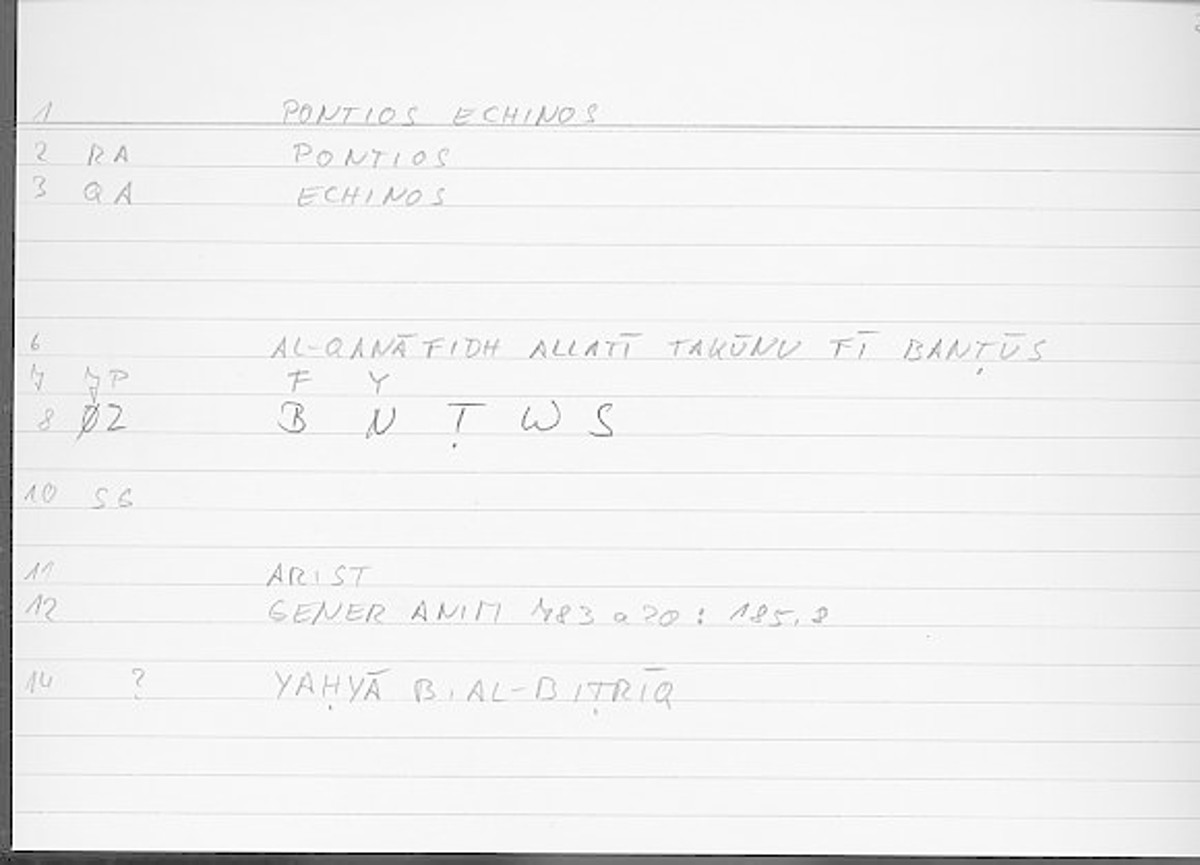 1 PONTIOS ECHINOS
2 RA PONTIOS
3 QA ECHINOS
6 AL-QANĀFIDH ALLATĪ TAKŪNU FĪ BANṬŪS
7 7P F Y
8 ØZ B N Ṭ W S
10 SG
11 ARIST
12 GENER ANIM 783 a 20 : 185,8
14 ? YAḤYĀ B. AL-BIṬRĪQ